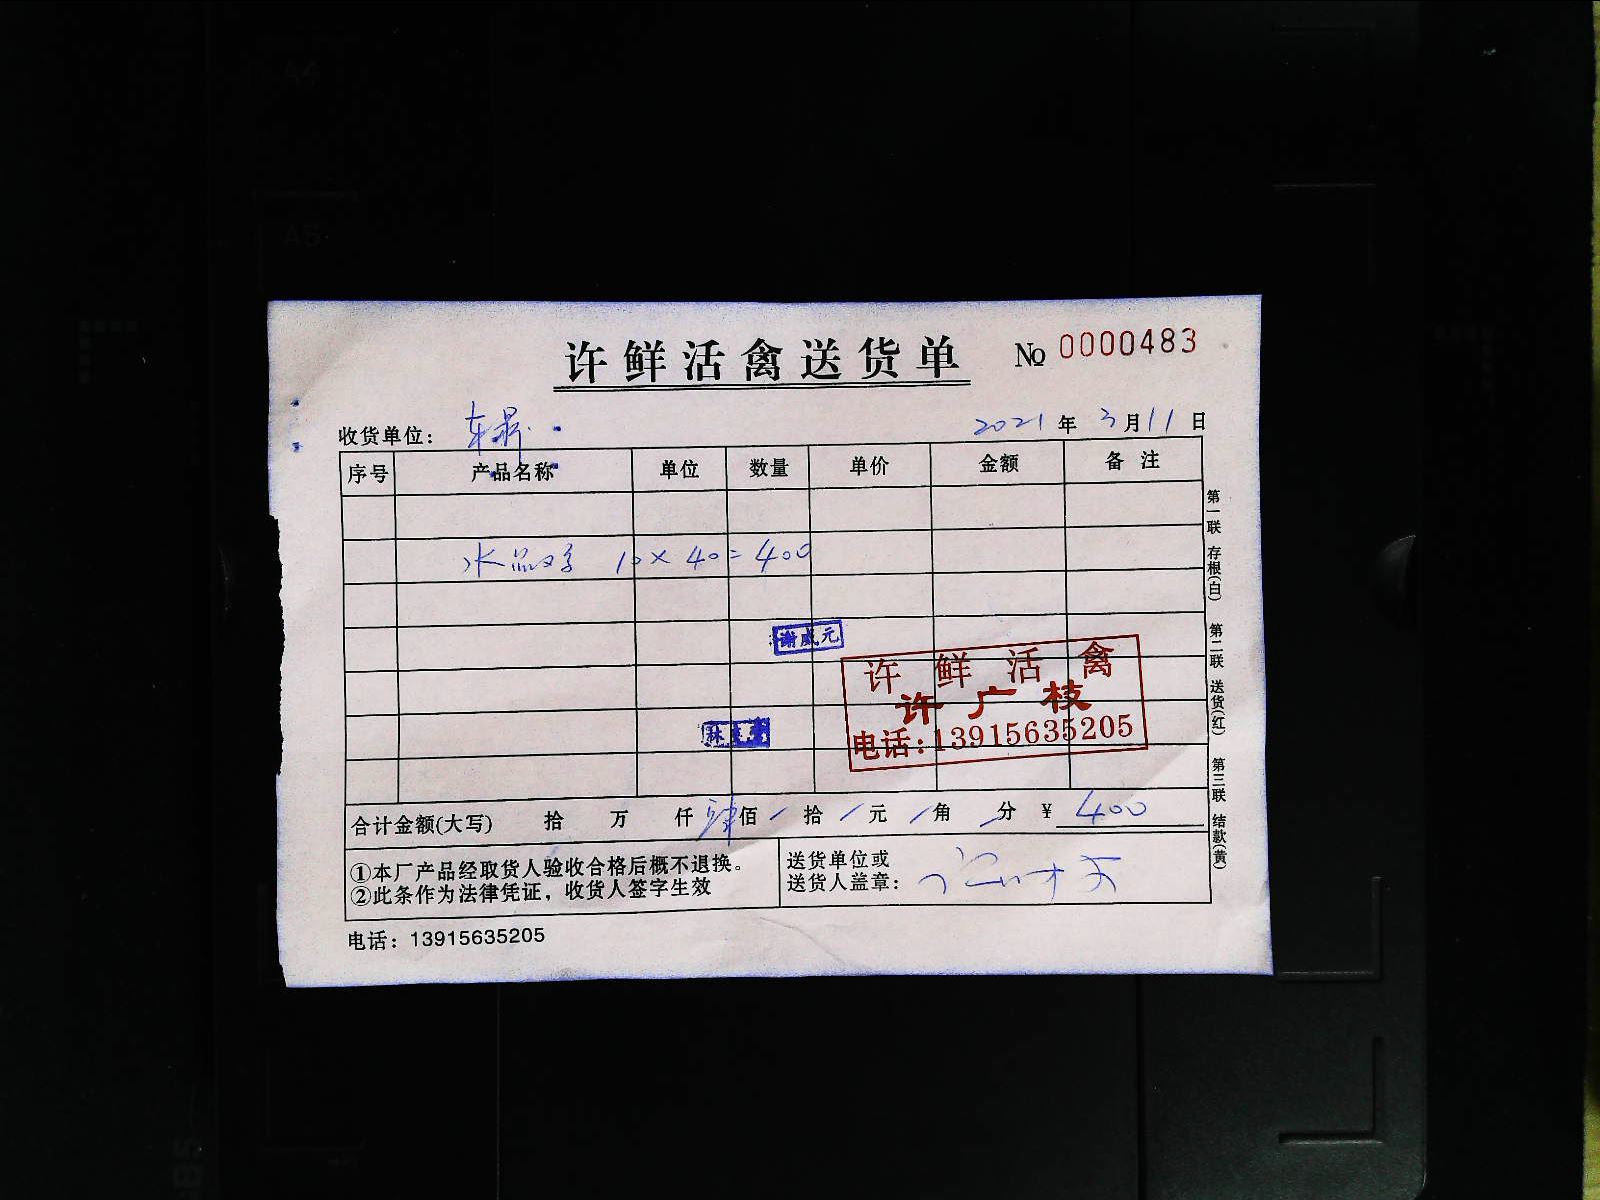 许鲜活禽送货单 № 0000483
收货单位： 2021 年 3 月 11 日
序号 产品名称 单位 数量 单价 金额 备注
10×40=400
谢成元
许鲜活禽
许广枝
电话:13915635205
林
合计金额(大写) 拾 万 仟 肆佰 / 拾 / 元 / 角 / 分 ¥ 400
①本厂产品经取货人验收合格后概不退换。
②此条作为法律凭证，收货人签字生效
送货单位或
送货人盖章：
电话：13915635205
第一联 存根(白) 第二联 送货(红) 第三联 结款(黄)
A4
A5